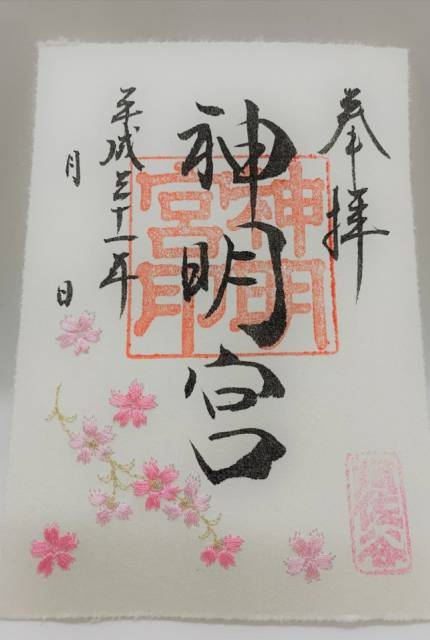 奉拝
神明宮
神明
宮印
平成三十一年
月
日